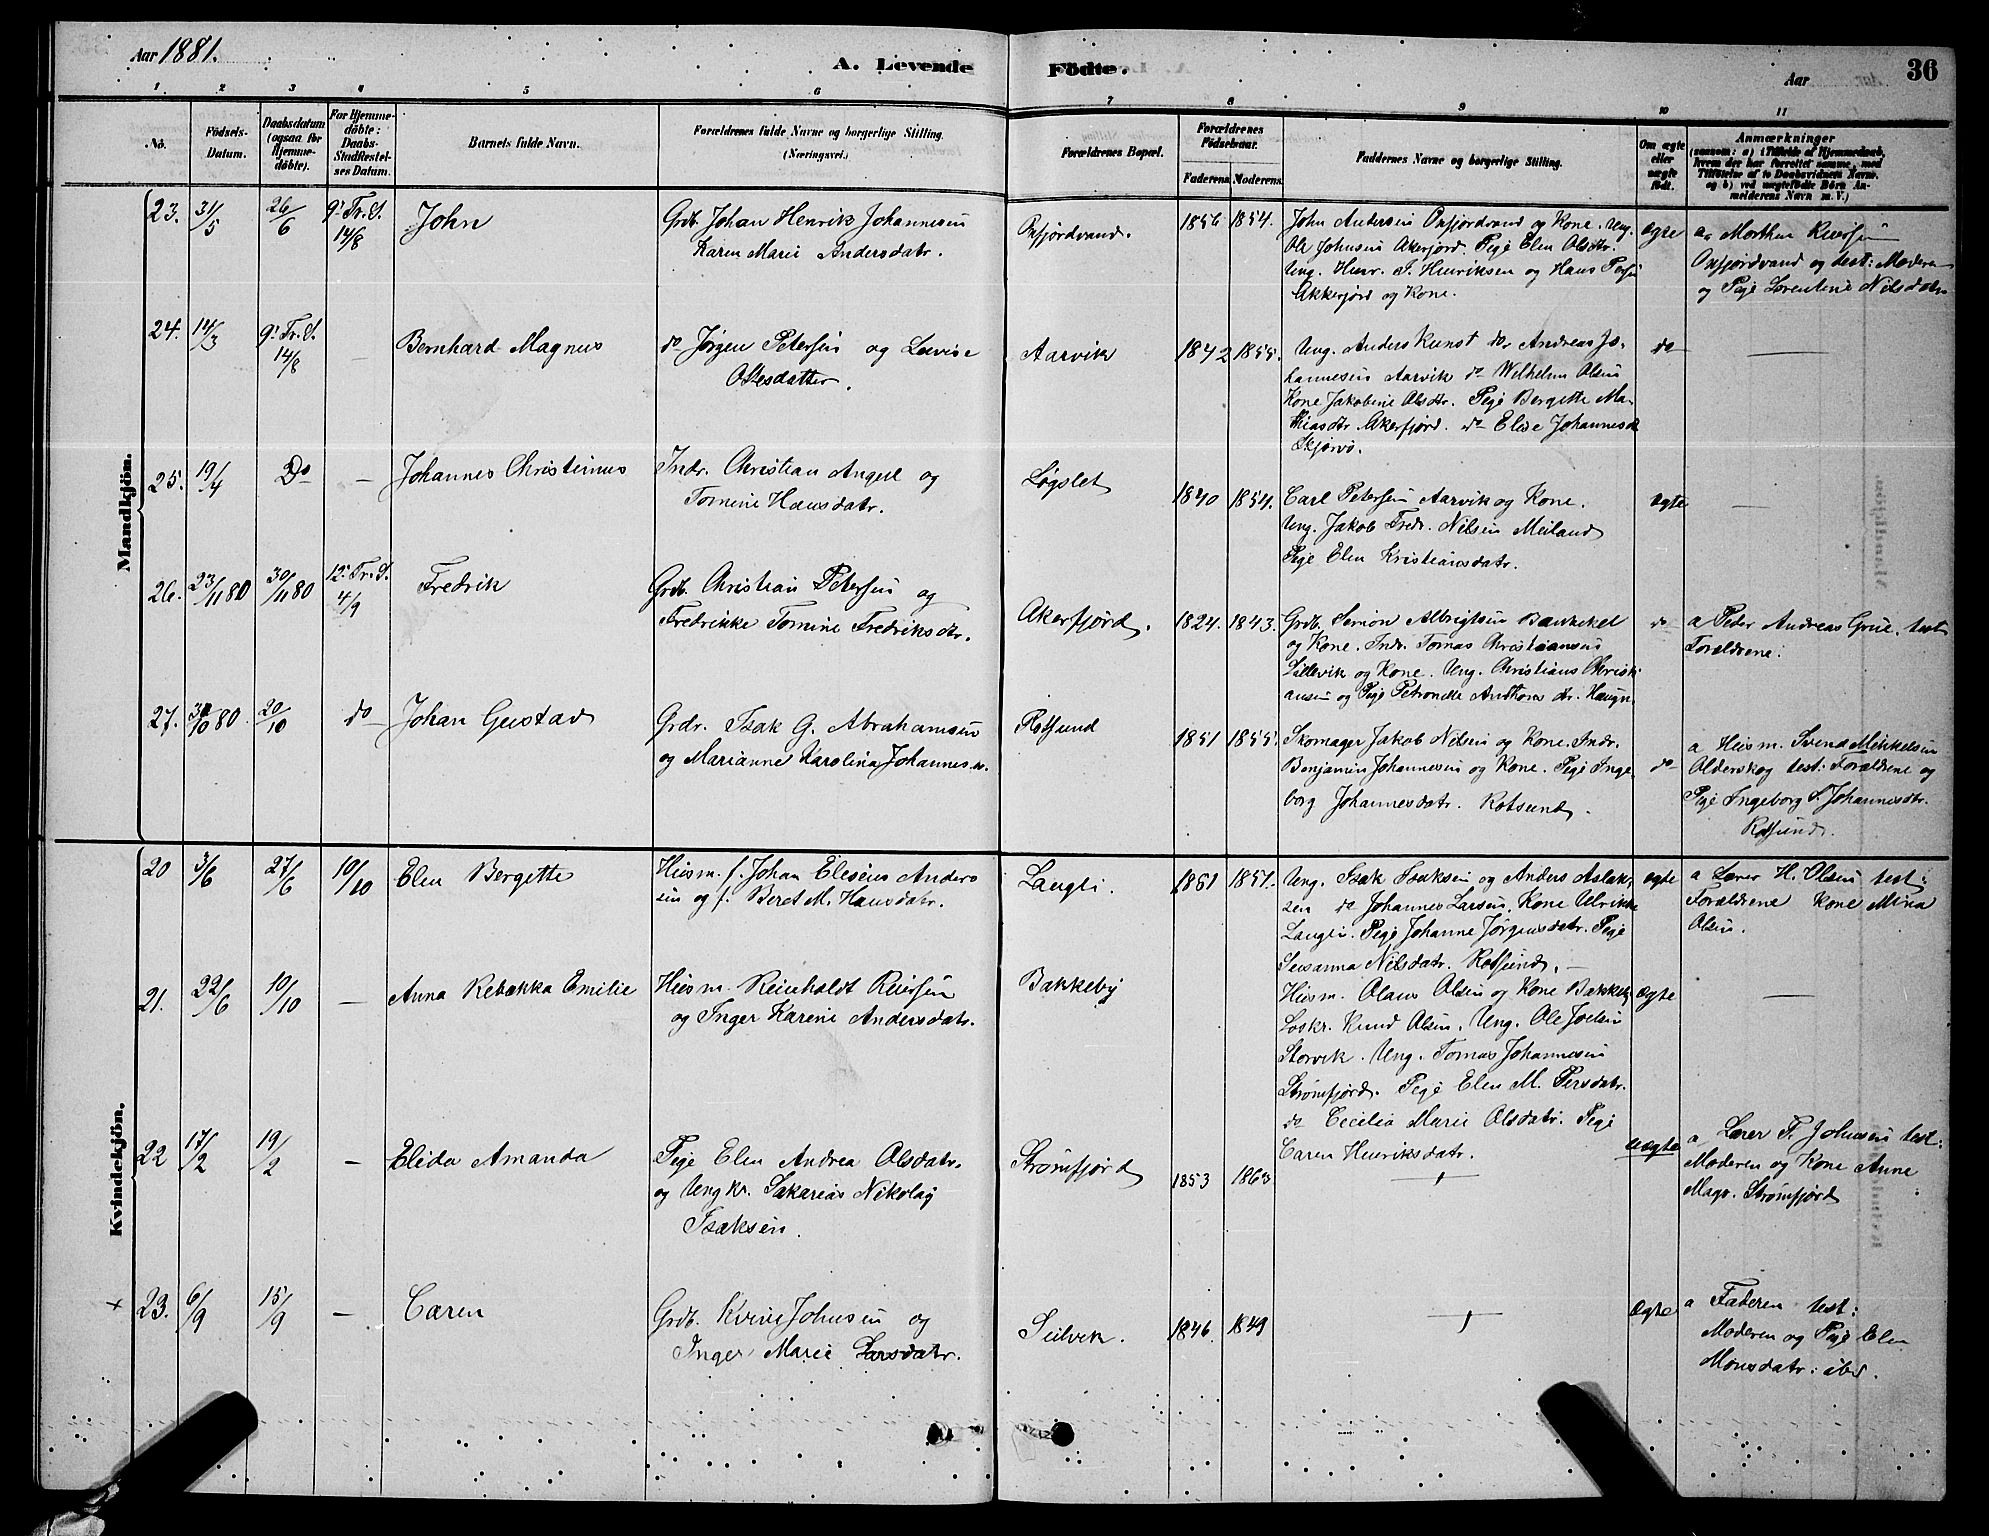 Aar 1881.
A. Levende
Födte.
Aar
36
1. 2 3 4 5 6 7 8 9 10 11
No.
Födsels-
Datum.
Daabsdatum
(ogsaa for
Hjemme-
döbte).
For Hjemme-
döbte:
Daabs-
Stadfæstel-
ses Datum.
Barnets fulde Navn.
Forældrenes fulde Navne og borgerlige Stilling.
(Næringsvei.)
Forældrenes Bopæl.
Forældrenes
Födselsaar.
Faderens Moderens.
Faddernes Navne og borgerlige Stilling.
Om ægte
eller
uægte
födt.
Anmærkninger
(saasom: a) i Tilfælde af Hjemmedaab,
hvem der har forrettet samme, med
Tilföielse af to Daabsvidners Navne.
og b) ved uægtefödte Börn An-
melderens Navn m. V.)
Mandkjön.
23. 31/5 26/6 9. Tr. S.
14/8
John
Grdb. Johan Henrik Johannesen
Karen Marie Andersdatr.
Oxfjordvand.
1856 1854.
John Andersen Oxfjordvand og Kone. Ung.
Ole Johnsen Akerfjord. Pige Elen Olsdtr.
Ung. Henr. J. Henriksen og Hans Persen
Akkerfjord og Kone.
ægte
a, Morthen Reiersen
Oxfjordvand og test: Moderen
og Pige Lorentine Nilsdatr.
24. 14/3 9. Tr. S.
14/8
-
Bernhard Magnus
do Jørgen Petersen og Lovise
Olesdatter.
Aarvik
1842 1855.
Ung. Anders Kunst do Andreas Jo-
hannesen Aarvik do Wilhelm Olsen
Kone Jakobine Olsdtr. Pige Bergette Ma-
thiasdtr. Akerfjord. do Elise Johannesd.
Skjervø.
do
25. 19/4 Do -
Johannes Christinus
Indr. Christian Angel og
Tomine Hansdatr.
Løgslet
1840 1854.
Carl Petersen Aarvik og Kone.
Ung. Jakob Fredr. Nilsen Meiland
Pige Elen Kristiansdatr.
ægte
26. 23/11 80 30/11 80 12. Tr. S.
4/9
Fredrik
Grdb. Christian Petersen og
Fredrikke Tomine Fredriksdtr.
Akerfjord.
1824. 1843.
Grdb. Simon Albrigtsen
og Kone. Indr. Tomas Christiansen
Lillevik og Kone. Ung. Christians Christi-
ansen og Pige Petronelle
do
a Peder Andreas test
Forældrene.
27. 80. 20/10 do
Johan Gustav
Grdr. Isak G. Abrahamsen
og Marianne Karolina Johannes.
Rotsund
1851 1855.
Skomager Jakob Nilsen og Kone. Indr.
Benjamin Johannesen og Kone. Pige Inge-
borg Johannesdatr. Rotsund.
do
a Husm. Svend Mikkelsen
Olderskog test: Forældrene og
Pige Ingeborg S. Johannesdtr.
Rotsund.
Kvindekjön.
20 3/6 27/6 10/10
Elen Bergette
Husm. f. Johan Eleseus Anders
sen og f. Beret M. Hansdatr.
Langli.
1851 1851.
Ung. Isak Isaksen og Anders Aslak-
sen do Johannes Larsen, Kone Ulrikke
Langli. Pige Johanne Jørgensdatr. Pige
Susanna Nilsdatr. Rotsund.
ægte
a Lærer H. Olsen test:
Forældrene Kone Mina
Olsen.
21. 22/6 10/10 -
Anna Rebækka Emilie
Husm. Reinholdt Reiersen
og Inger Karine Andersdatr.
Bakkeby
Husm. Olaus Olsen og Kone Bakkeby
Loskr. Knud Olsen. Ung. Ole Joelsen
Storvik. Ung. Tomas Johannesen
Strømfjord. Pige Elen M. Persdatr.
do Cecilia Marie Olsdatr. Pige
Caren Henriksdatr.
ægte
22 17/2 19/2 -
Elida Amanda
Pige Elen Andrea Olsdatr.
og Ungkr. Sakarias Nikolaj
Isaksen.
Strømfjord
1853 1863
uægte
a Lærer F. Johnsen test:
Moderen og Kone Anne
Magr. Strømfjord
+ 23. 6/9 15/9 -
Caren
Grdb. Johnsen og
Inger Marie Larsdatr.
1846. 1849
ægte
a Faderen test:
Moderen og Pige Elen
Monsdatr: ibd.